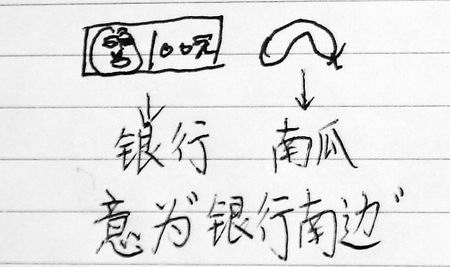 100元
银行 南瓜
意为"银行南边"